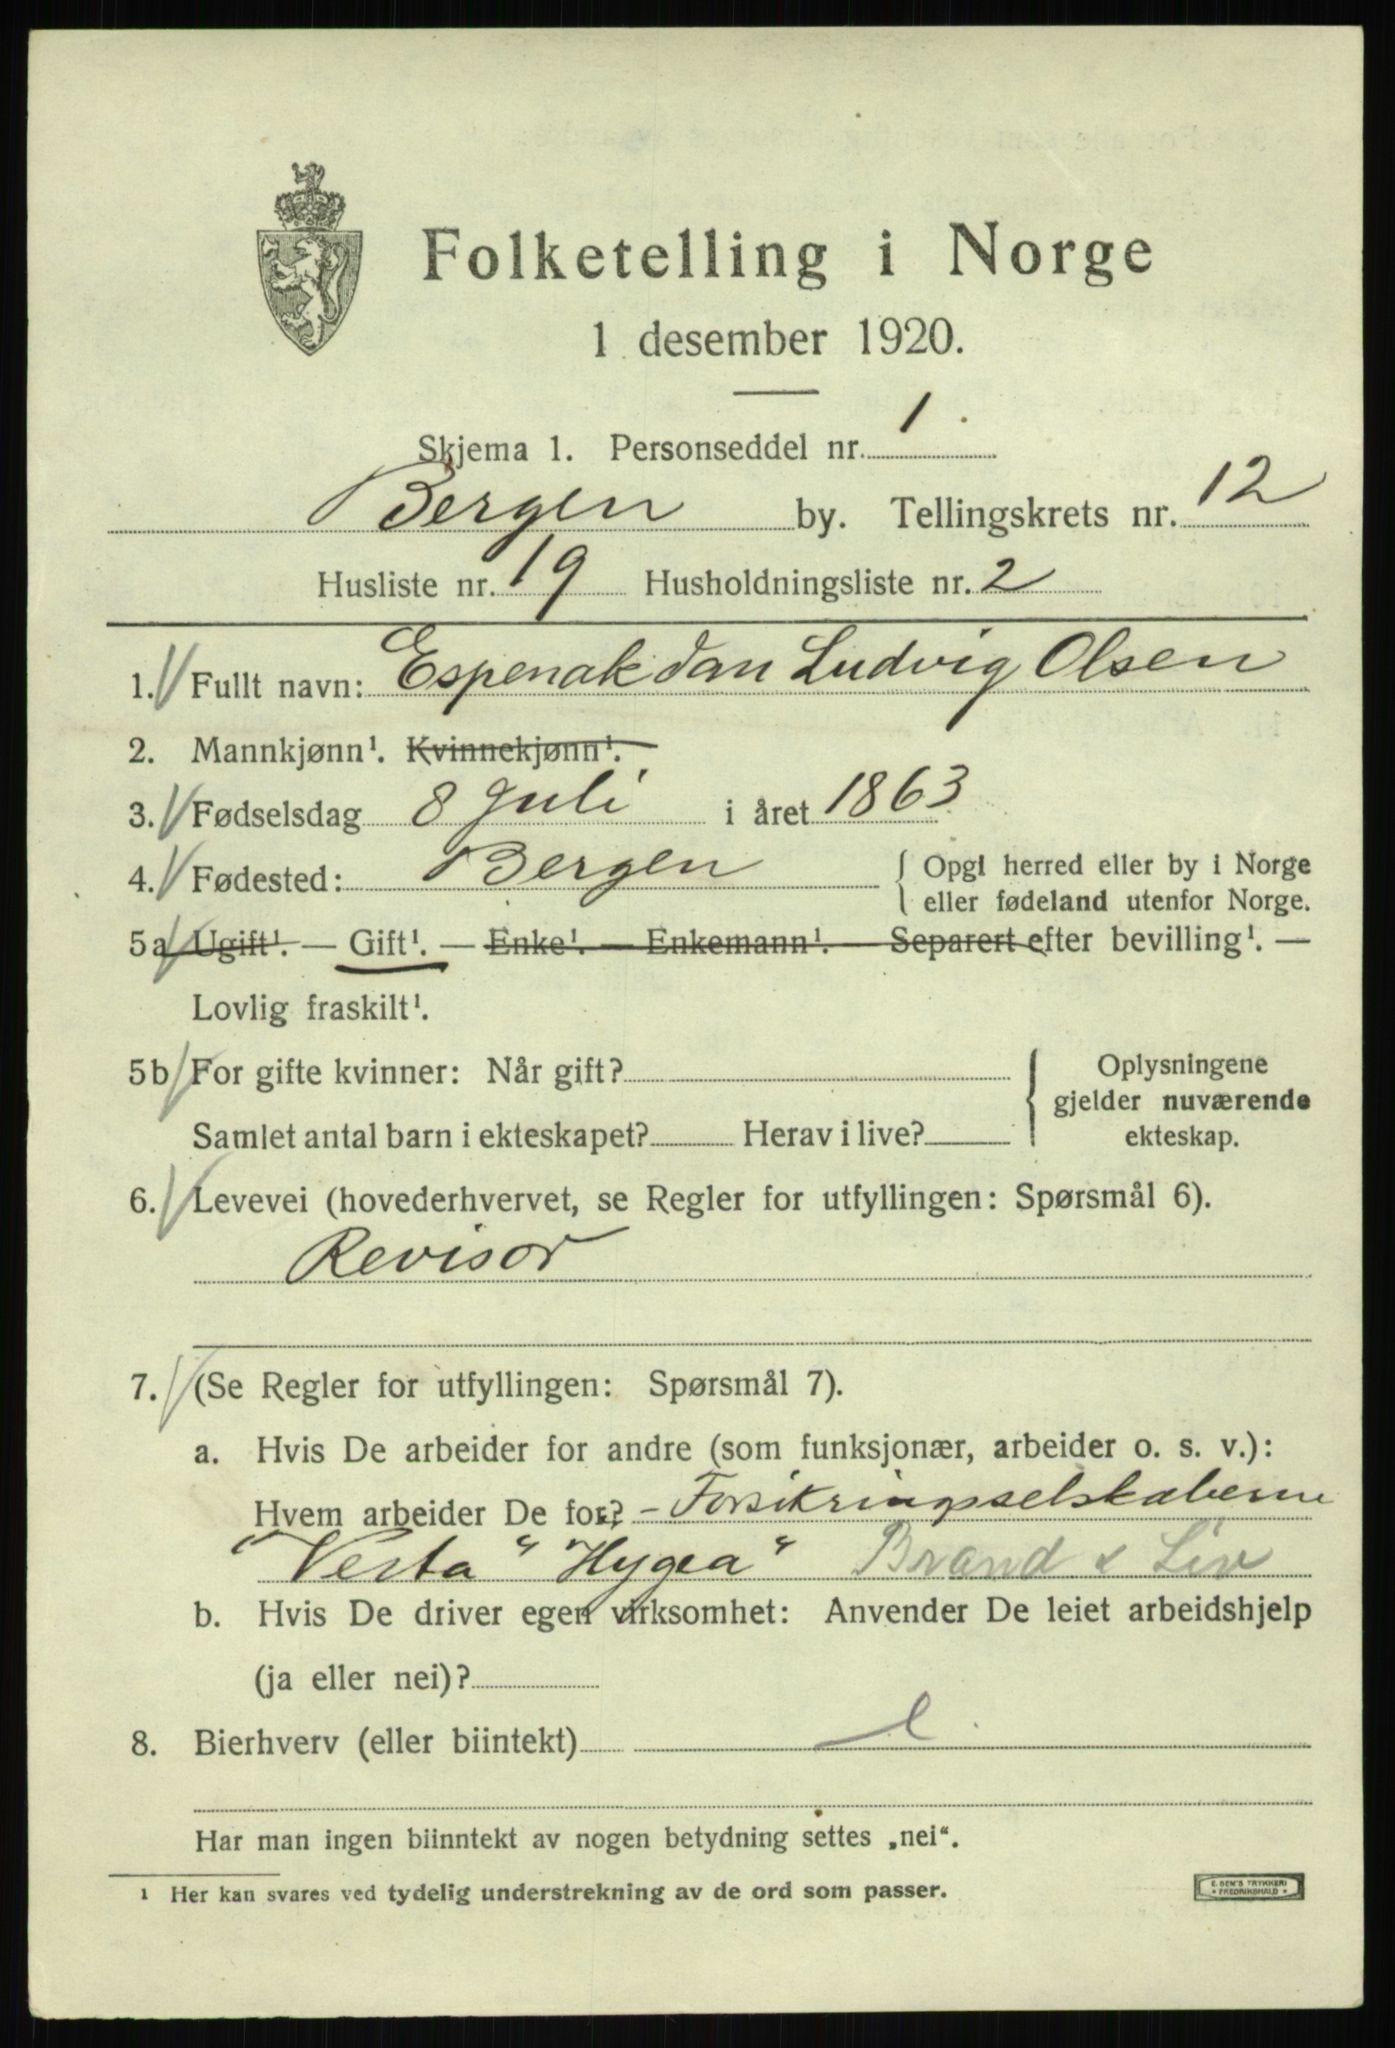 Folketelling i Norge
1 desember 1920.
Skjema 1. Personseddel nr. 1
Bergen by. Tellingskrets nr. 12
Husliste nr. 19 Husholdningsliste nr. 2
1. Fullt navn: Espenak Jan Ludvig Olsen
2. Mannkjønn¹. Kvinnekjønn¹.
3. Fødselsdag 8 Juli i året 1863
4. Fødested: Bergen { Opgi herred eller by i Norge
eller fødeland utenfor Norge.
5a Ugift¹. — Gift¹. — Enke¹. — Enkemann¹. — Separert efter bevilling¹. —
Lovlig fraskilt¹.
5b For gifte kvinner: Når gift? { Oplysningene
gjelder nuværende
Samlet antal barn i ekteskapet? Herav i live? ekteskap.
6. Levevei (hovederhvervet, se Regler for utfyllingen: Spørsmål 6).
Revisor
7. (Se Regler for utfyllingen: Spørsmål 7).
a. Hvis De arbeider for andre (som funksjonær, arbeider o. s. v.):
Hvem arbeider De for? – Forsikringsselskaberne
"Vesta" "Hygea" Brand & Liv
b. Hvis De driver egen virksomhet: Anvender De leiet arbeidshjelp
(ja eller nei)?
8. Bierhverv (eller biintekt)
Har man ingen biinntekt av nogen betydning settes „nei“.
¹ Her kan svares ved tydelig understrekning av de ord som passer.
E. SEM'S TRYKKERI
• FREDRIKSHALD •